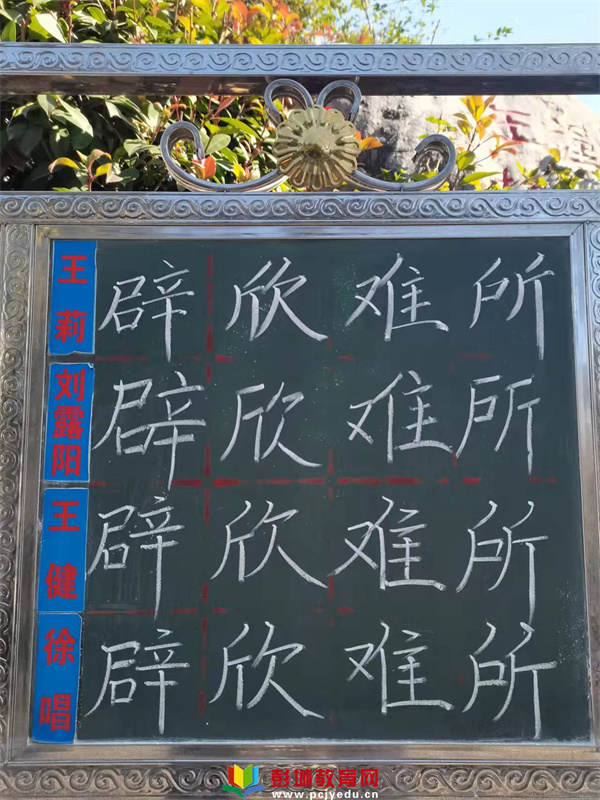 王莉 辟欣难所
刘露阳 辟欣难所
王健 辟欣难所
徐唱 辟欣难所
彭城教育网
www.pcjyedu.cn